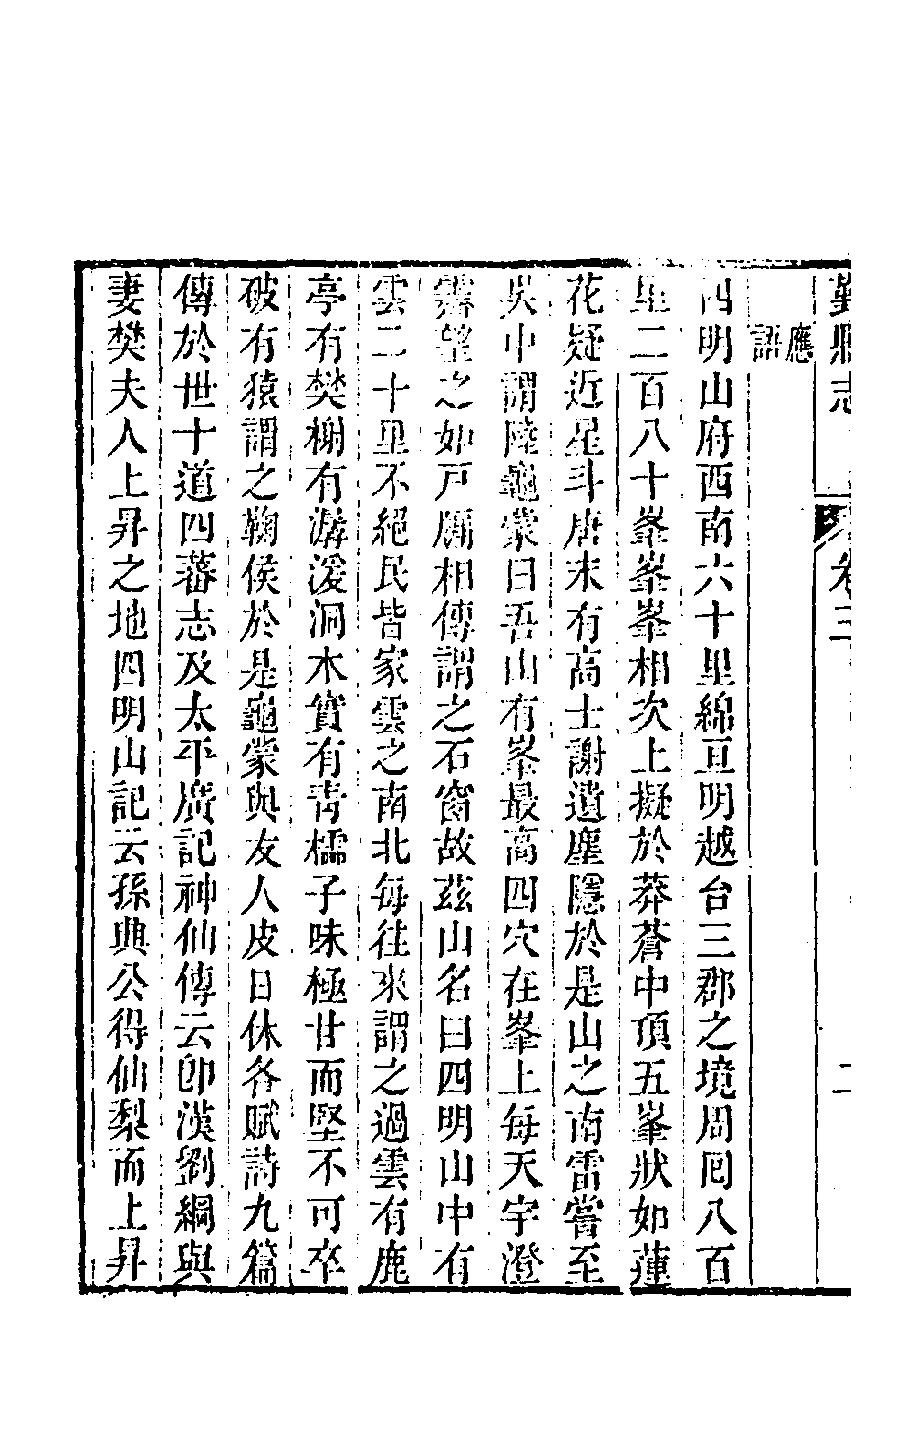 鄞縣志　卷三　二
應
語
四明山府西南六十里綿亘明越台三郡之境周囘八百
里二百八十峯峯峯相次上擬於莽蒼中頂五峯狀如蓮
花疑近星斗唐末有高士謝遺塵隱於是山之南雷嘗至
吳中謂陸龜蒙曰吾山有峯最高四穴在峯上每天宇澄
霽望之如戸牖相傳謂之石窗故茲山名曰四明山中有
雲二十里不絕民皆家雲之南北每往來謂之過雲有鹿
亭有樊榭有潺湲洞木實有靑櫺子味極甘而堅不可卒
破有猿謂之鞠侯於是龜蒙與友人皮日休各賦詩九篇
傳於世十道四蕃志及太平廣記神仙傳云卽漢劉綱與
妻樊夫人上昇之地四明山記云孫興公得仙梨而上昇